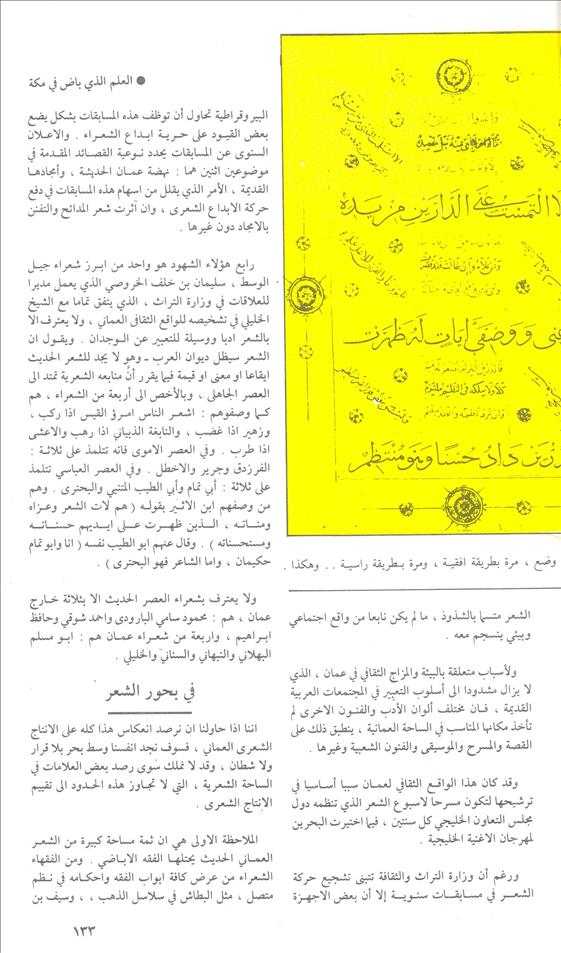 ● العلم الذي باض في مكة
وضع ، مرة بطريقة افقية ، ومرة بطريقة راسية .. وهكذا .
الشعر متسما بالشذوذ ، ما لم يكن نابعا من واقع اجتماعي
وبيئي ينسجم معه .
ولأسباب متعلقة بالبيئة والمزاج الثقافي في عمان ، الذي
لا يزال مشدودا الى أسلوب التعبير في المجتمعات العربية
القديمة ، فان مختلف ألوان الأدب والفنون الاخرى لم
تأخذ مكانها المناسب في الساحة العمانية ، ينطبق ذلك على
القصة والمسرح والموسيقى والفنون الشعبية وغيرها .
وقد كان هذا الواقع الثقافي لعمان سببا أساسيا في
ترشيحها لتكون مسرحا لاسبوع الشعر الذي تنظمه دول
مجلس التعاون الخليجي كل سنتين ، فيما اختيرت البحرين
لمهرجان الاغنية الخليجية .
ورغم أن وزارة التراث والثقافة تتبنى تشجيع حركة
الشعر في مسابقات سنوية إلا أن بعض الاجهزة
البيروقراطية تحاول أن توظف هذه المسابقات بشكل يضع
بعض القيود على حرية ابداع الشعراء . والاعلان
السنوى عن المسابقات يحدد نوعية القصائد المقدمة في
موضوعين اثنين هما : نهضة عمان الحديثة ، وأمجادها
القديمة ، الأمر الذي يقلل من اسهام هذه المسابقات في دفع
حركة الابداع الشعرى ، وان آثرت شعر المدائح والتفنن
بالامجاد دون غيرها .
رابع هؤلاء الشهود هو واحد من ابرز شعراء جيل
الوسط ، سليمان بن خلف الخروصي الذي يعمل مديرا
للعلاقات في وزارة التراث ، الذي يتفق تماما مع الشيخ
الخليلي في تشخيصه للواقع الثقافي العماني ، ولا يعترف الا
بالشعر ادبا ووسيلة للتعبير عن الوجدان . ويقول ان
الشعر سيظل ديوان العرب ـ وهو لا يجد للشعر الحديث
ايقاعا او معنى او قيمة فيما يقرر أن منابعه الشعرية تمتد الى
العصر الجاهلى ، وبالأخص الى أربعة من الشعراء ، هم
كما وصفوهم : اشعر الناس امرؤ القيس اذا ركب ،
وزهير اذا غضب ، والنابغة الذبياني اذا رهب والاعشى
اذا طرب . وفي العصر الاموى فانه تتلمذ على ثلاثة :
الفرزدق وجرير والاخطل . وفي العصر العباسي تتلمذ
على ثلاثة : أبي تمام وأبي الطيب المتنبي والبحترى . وهم
من وصفهم ابن الاثير بقوله ( هم لات الشعر وعزاه
ومناته ، الذين ظهرت على ايديهم حسناته
ومستحسناته ) . وقال عنهم ابو الطيب نفسه ( انا وابو تمام
حكيمان ، واما الشاعر فهو البحترى ) .
ولا يعترف بشعراء العصر الحديث الا بثلاثة خارج
عمان ، هم : محمود سامي البارودى واحمد شوقي وحافظ
ابراهيم ، واربعة من شعراء عمان هم : ابو مسلم
البهلاني والنبهاني والستالي والخليلي .
في بحور الشعر
اننا اذا حاولنا ان نرصد انعكاس هذا كله على الانتاج
الشعرى العماني ، فسوف نجد انفسنا وسط بحر بلا قرار
ولا شطان ، وقد لا نملك سوى رصد بعض العلامات في
الساحة الشعرية ، التي لا تجاوز هذه الحدود الى تقييم
الانتاج الشعرى .
الملاحظة الاولى هي ان ثمة مساحة كبيرة من الشعر
العماني الحديث يحتلها الفقه الاباضي . ومن الفقهاء
الشعراء من عرض كافة ابواب الفقه واحكامه في نظم
متصل ، مثل البطاش في سلاسل الذهب ، ، وسيف بن
١٣٣